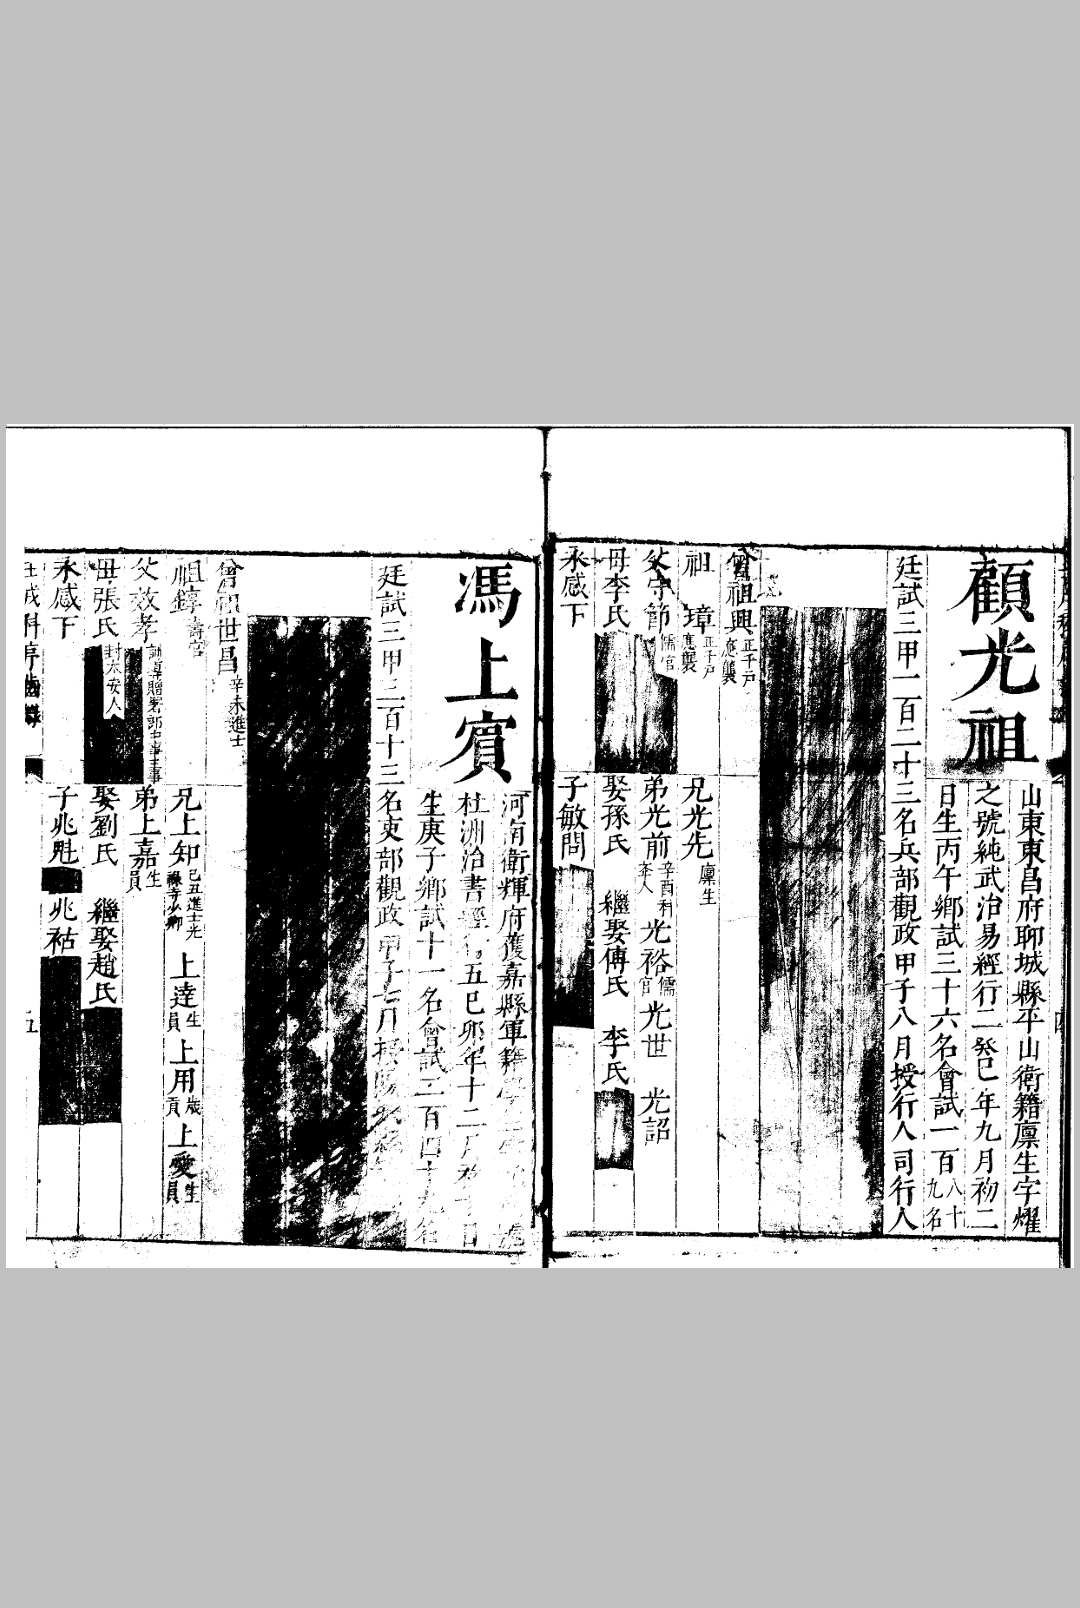 顧光祖
山東東昌府聊城縣平山衛籍廩生字耀
之號純武治易經行二癸巳年九月初二
日生丙午鄉試三十六名會試一百八十九名
廷試三甲一百二十三名兵部觀政甲子八月授行人司行人
曾祖興正千戶應襲
祖璋正千戶應襲
父守節儒官
母李氏
永感下
兄光先廩生
弟光前辛酉科舉人 光裕儒官 光世 光詔
娶孫氏 繼娶傅氏 李氏
子敏問
馮上賓
河南衛輝府獲嘉縣軍籍
杜洲治書經行五己卯年十二月初十日
生庚子鄉試十一名會試二百四十九名
廷試三甲二百十三名吏部觀政甲子七月授
曾祖世昌辛未進士
祖錞壽官
父效孝
母張氏封太安人
永感下
兄上知己丑進士光祿寺少卿 上達生員 上用歲貢 上愛生員
弟上嘉生員
娶劉氏 繼娶趙氏
子兆魁 兆祜
壬戌科序齒錄
五